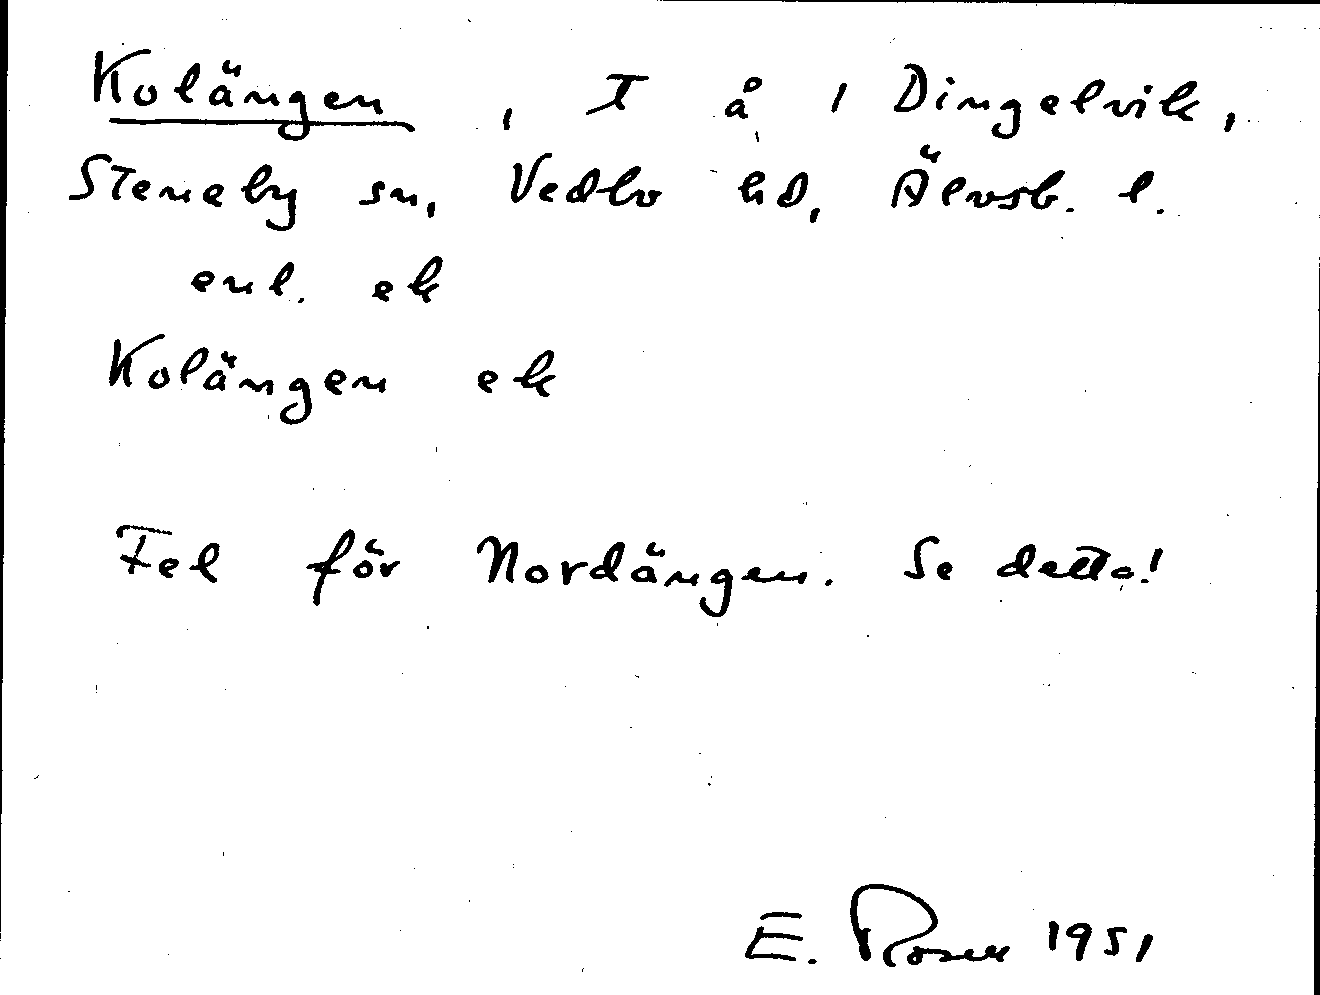 Kolängen, T å 1 Dingelvik,
Steneby sn, Vedbo hd, Älvsb. l.
enl. ek
Kolängen ek
Fel för Nordängen. Se detta!
E. Rosen 1951